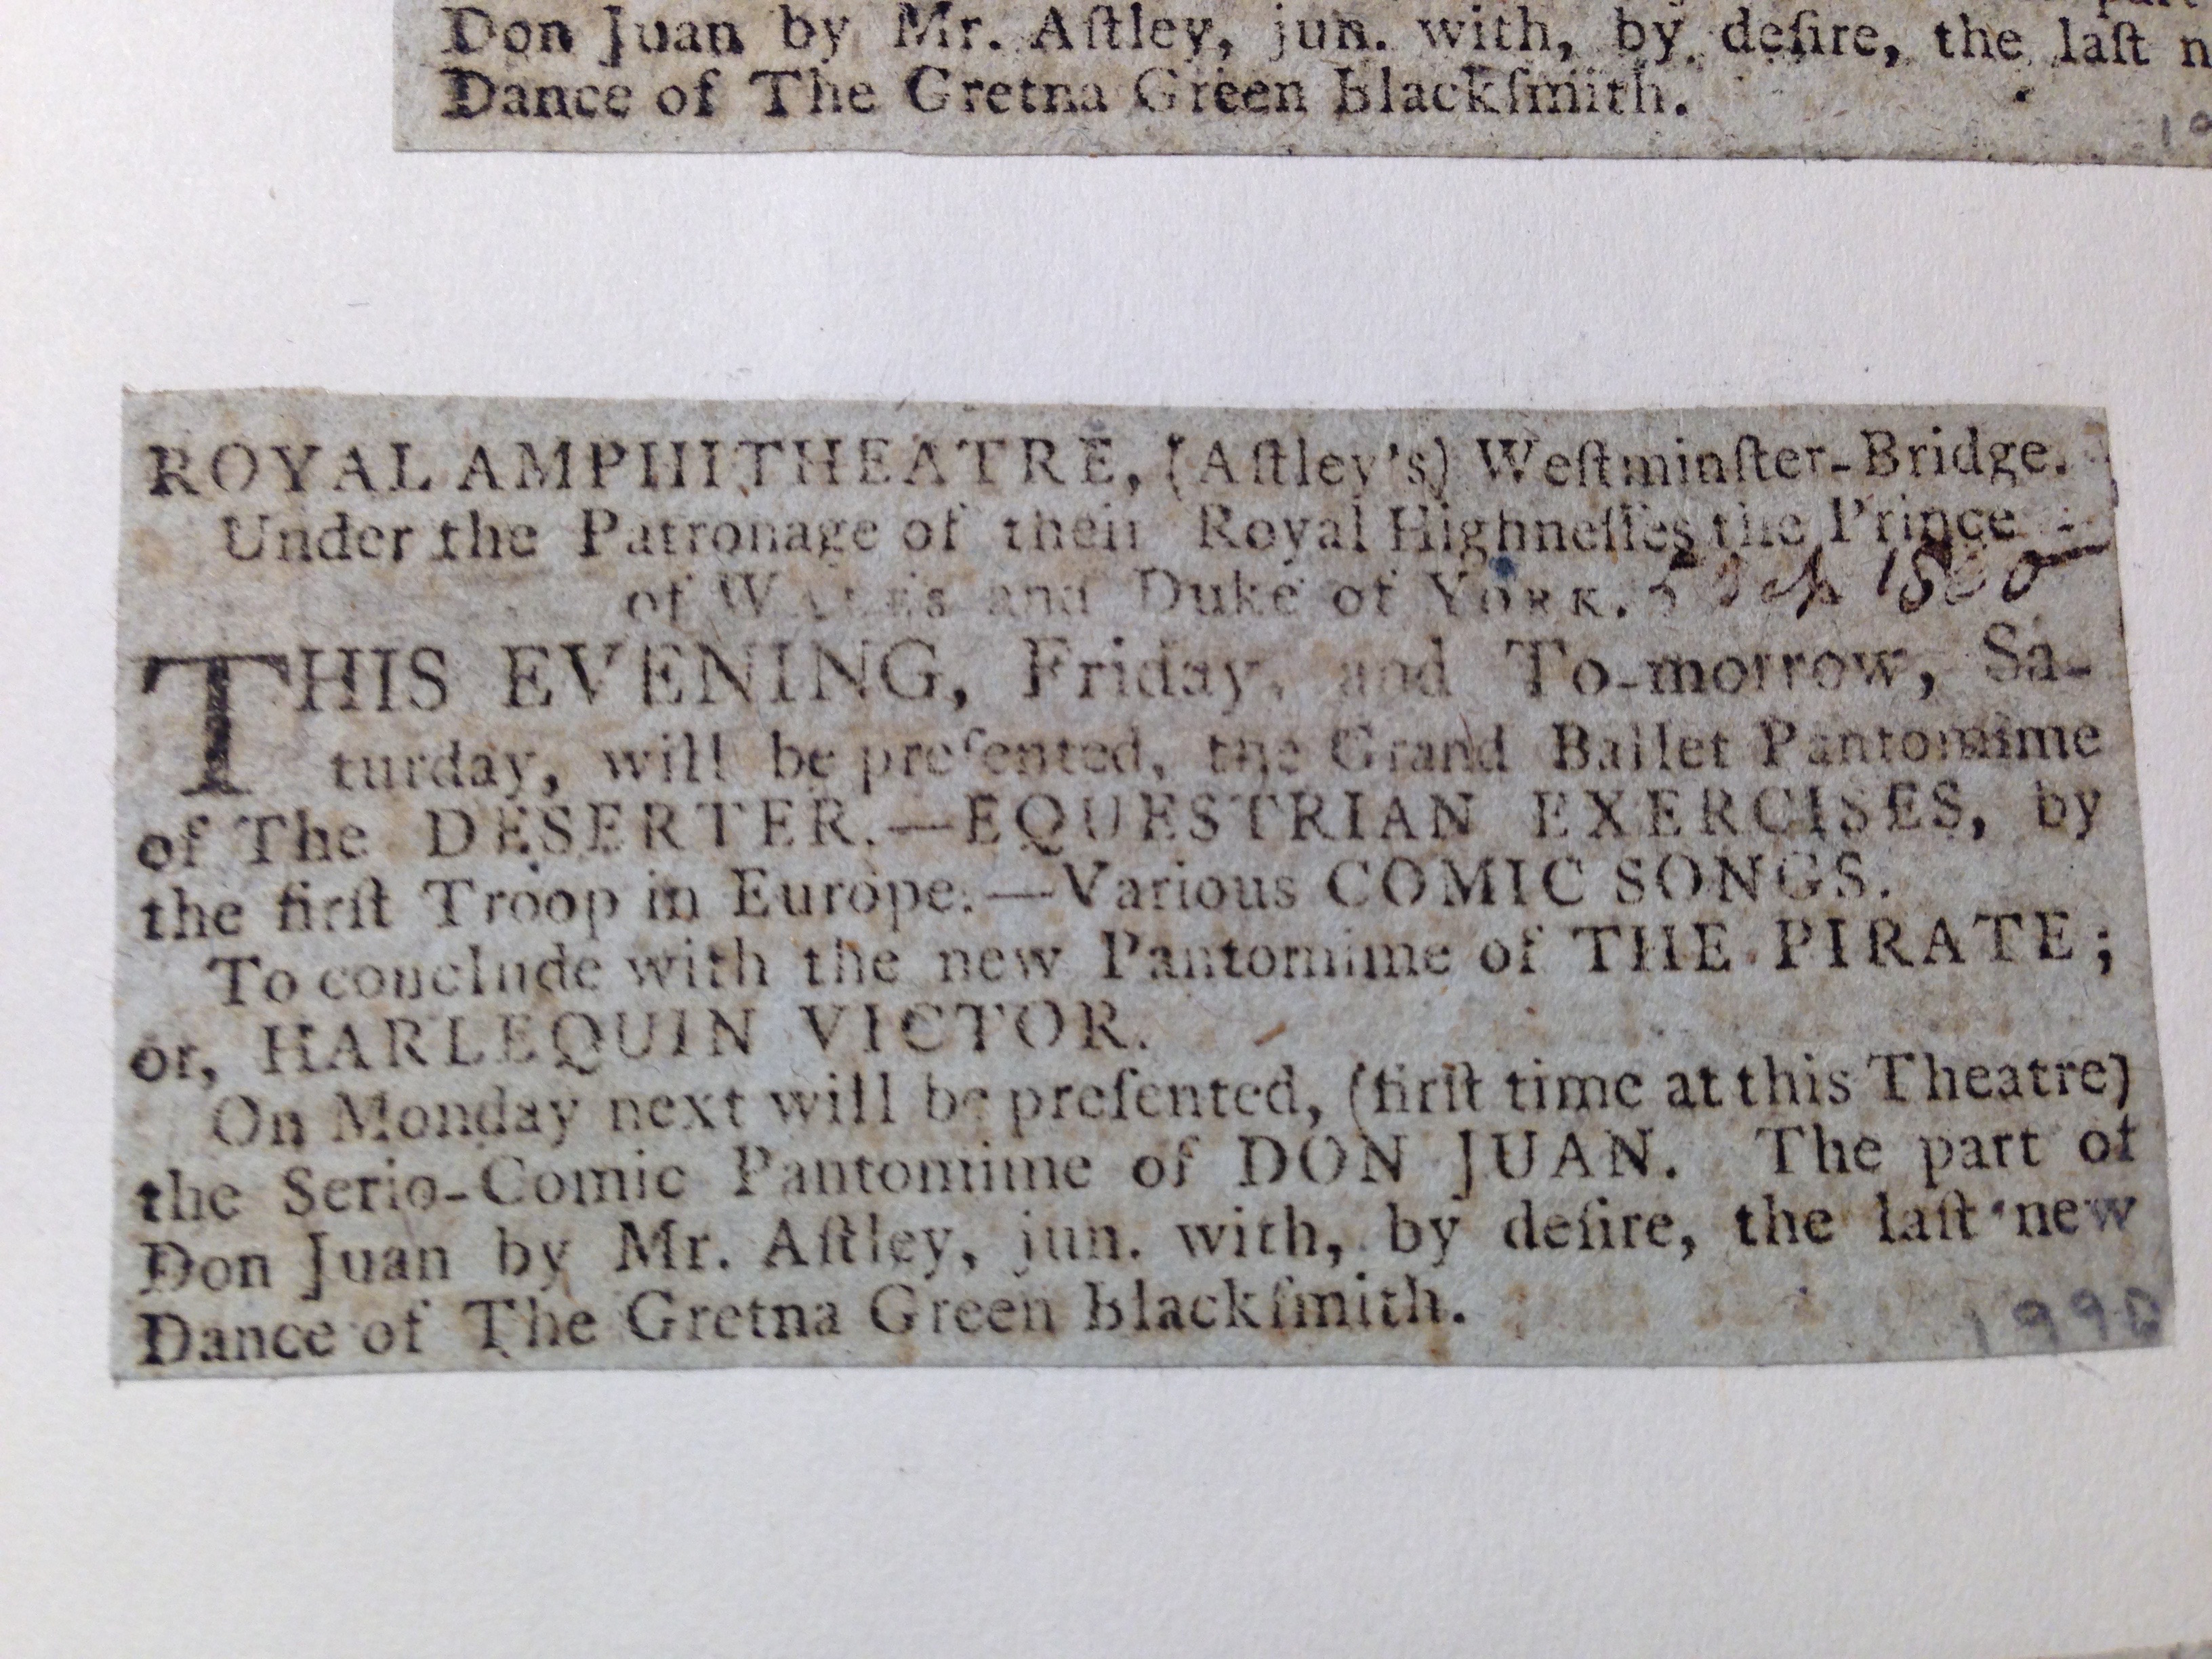 Don Juan by Mr. Aſtley, jun. with, by deſire, the laſt n
Dance of The Gretna Green Blackſmith.
ROYAL AMPHITHEATRE, (Aſtley's) Weſtminſter-Bridge.
Under the Patronage of their Royal Highneſſes the Prince
of WALES and Duke of YORK.
THIS EVENING, Friday, and To-morrow, Sa-
turday, will be preſented, the Grand Ballet Pantomime
of The DESERTER.—EQUESTRIAN EXERCISES, by
the firſt Troop in Europe.—Various COMIC SONGS.
To conclude with the new Pantomime of THE PIRATE;
or, HARLEQUIN VICTOR.
On Monday next will be preſented, (firſt time at this Theatre)
the Serio-Comic Pantomime of DON JUAN. The part of
Don Juan by Mr. Aſtley, jun. with, by deſire, the laſt new
Dance of The Gretna Green Blackſmith.